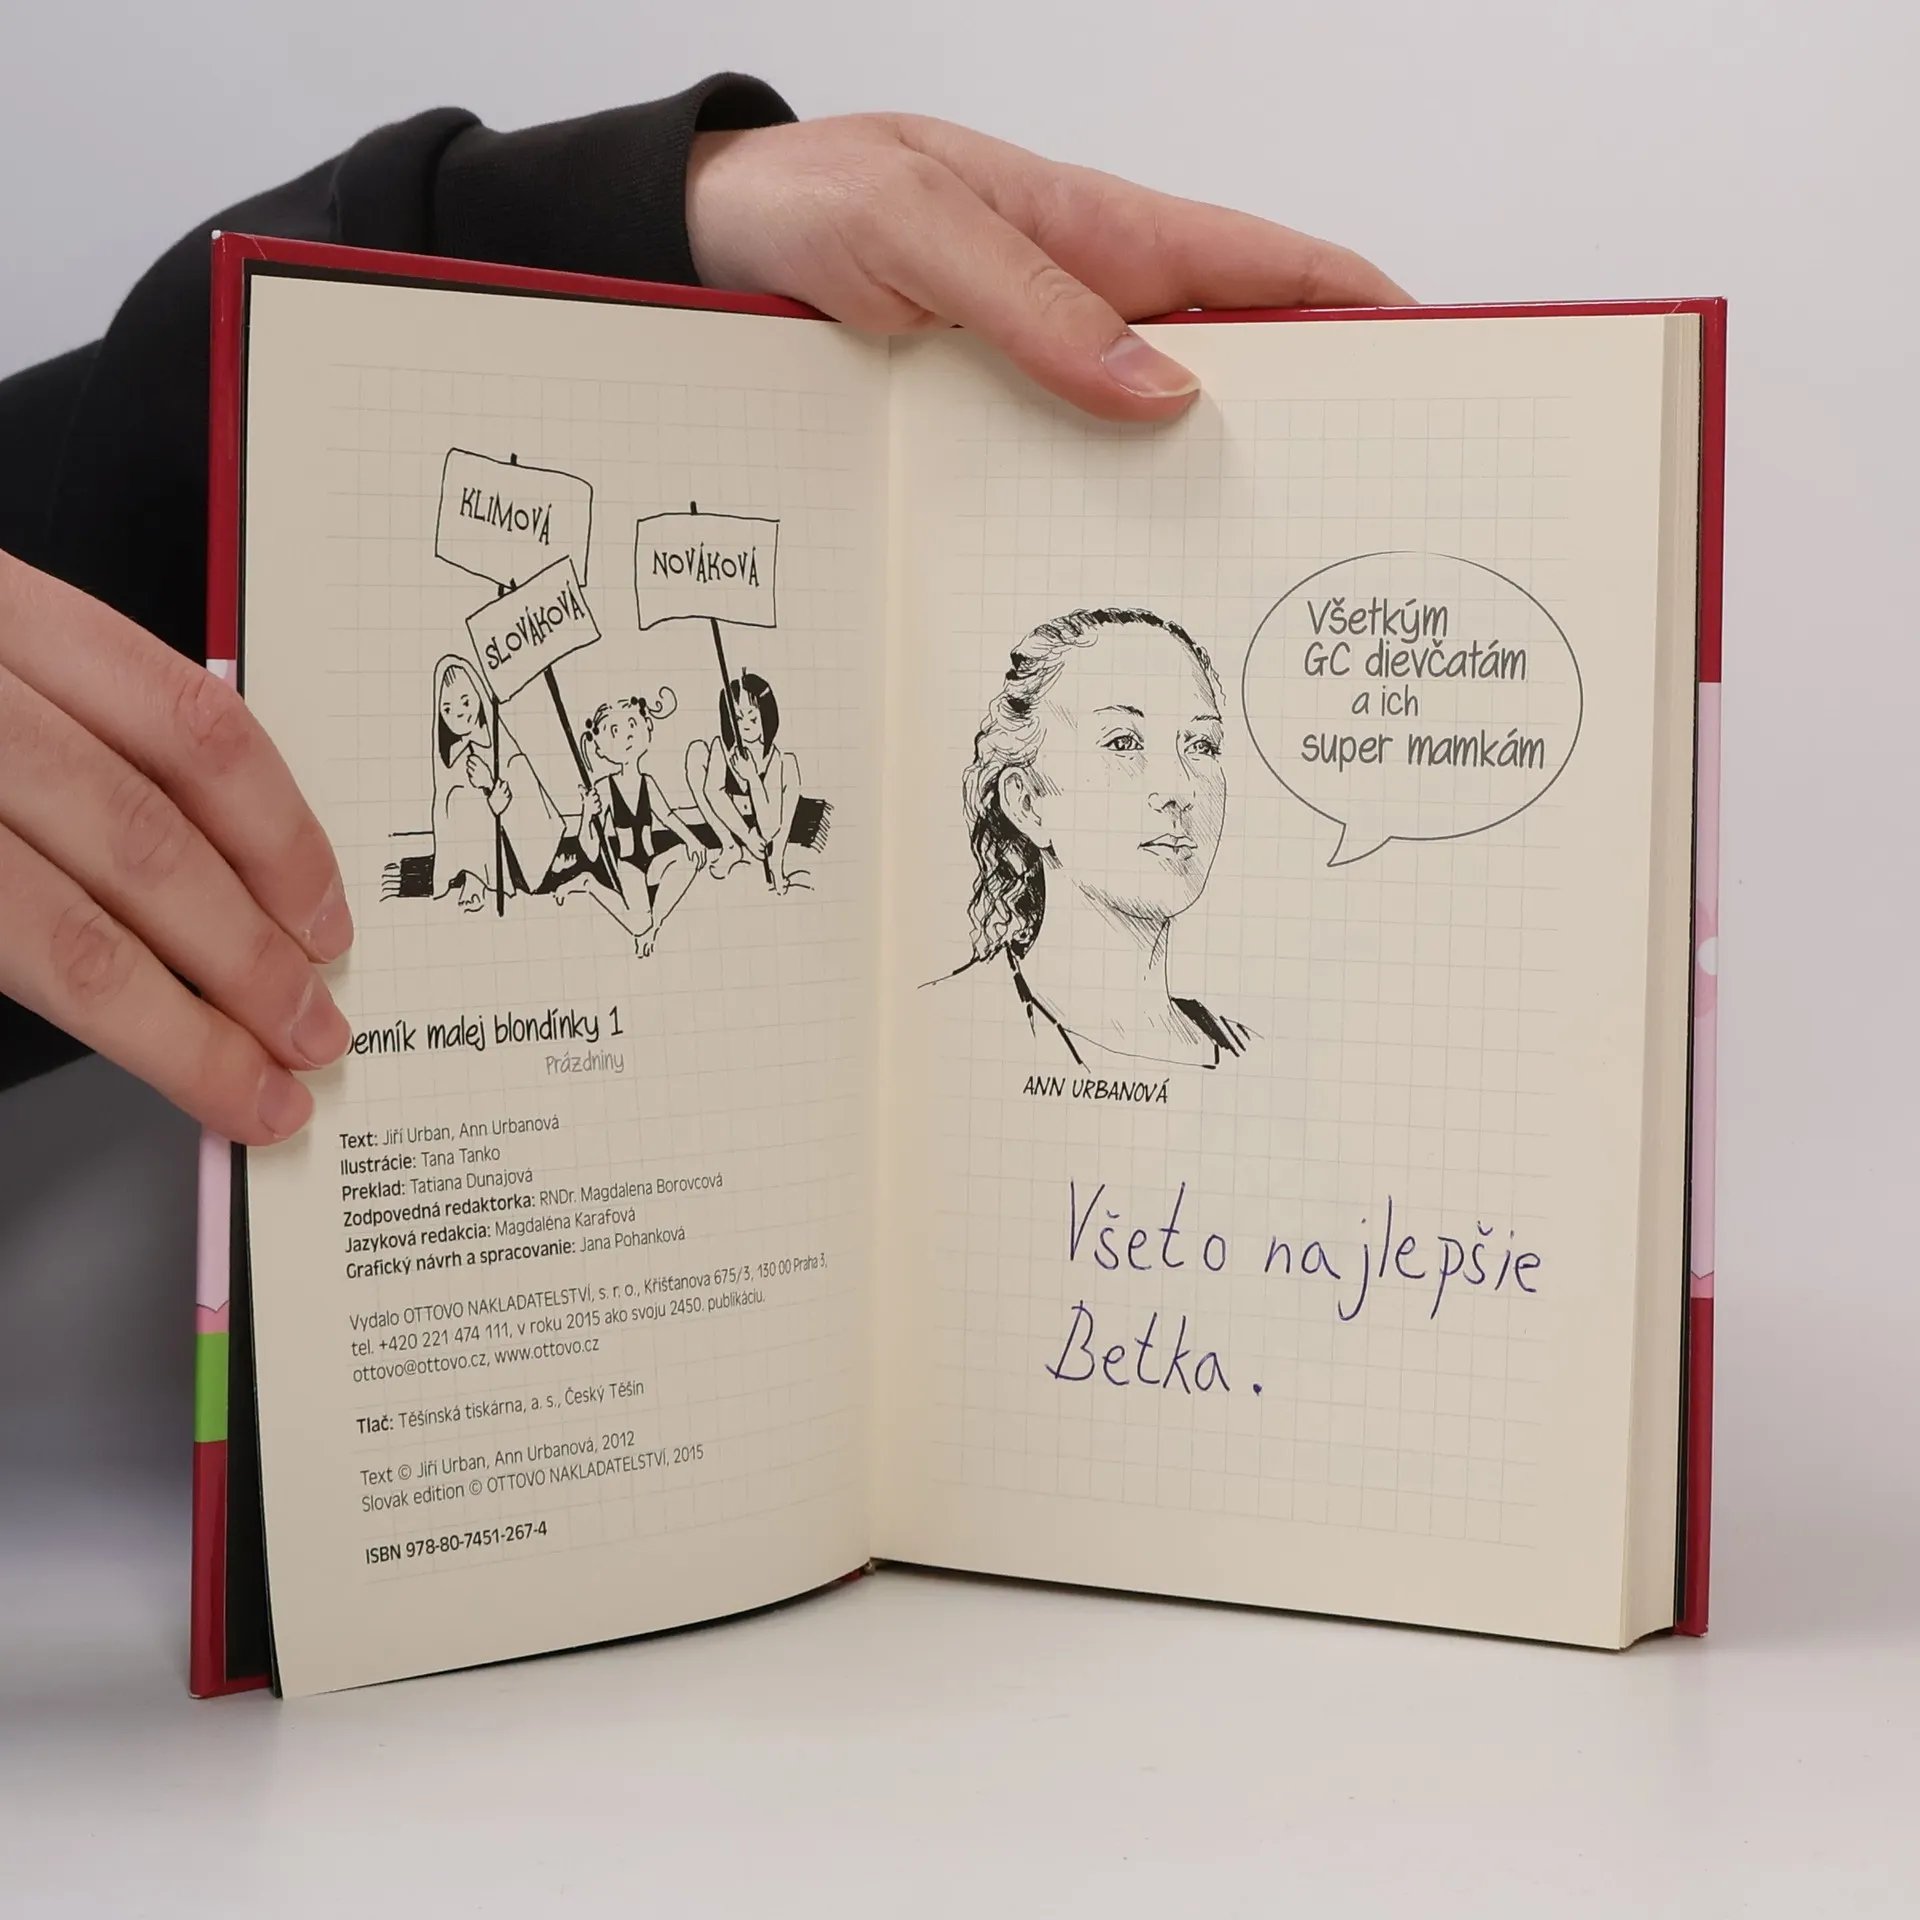 KLIMOVÁ
SLOVÁKOVÁ
NOVÁKOVÁ
enník malej blondínky 1
Prázdniny
Text: Jiří Urban, Ann Urbanová
Ilustrácie: Tana Tanko
Preklad: Tatiana Dunajová
Zodpovedná redaktorka: RNDr. Magdalena Borovcová
Jazyková redakcia: Magdaléna Karafová
Grafický návrh a spracovanie: Jana Pohanková
Vydalo OTTOVO NAKLADATELSTVÍ, s. r. o., Křišťanova 675/3, 130 00 Praha 3,
tel. +420 221 474 111, v roku 2015 ako svoju 2450. publikáciu.
ottovo@ottovo.cz, www.ottovo.cz
Tlač: Těšínská tiskárna, a. s., Český Těšín
Text © Jiří Urban, Ann Urbanová, 2012
Slovak edition © OTTOVO NAKLADATELSTVÍ, 2015
ISBN 978-80-7451-267-4
Všetkým
GC dievčatám
a ich
super mamkám
ANN URBANOVÁ
Všeto najlepšie
Betka.